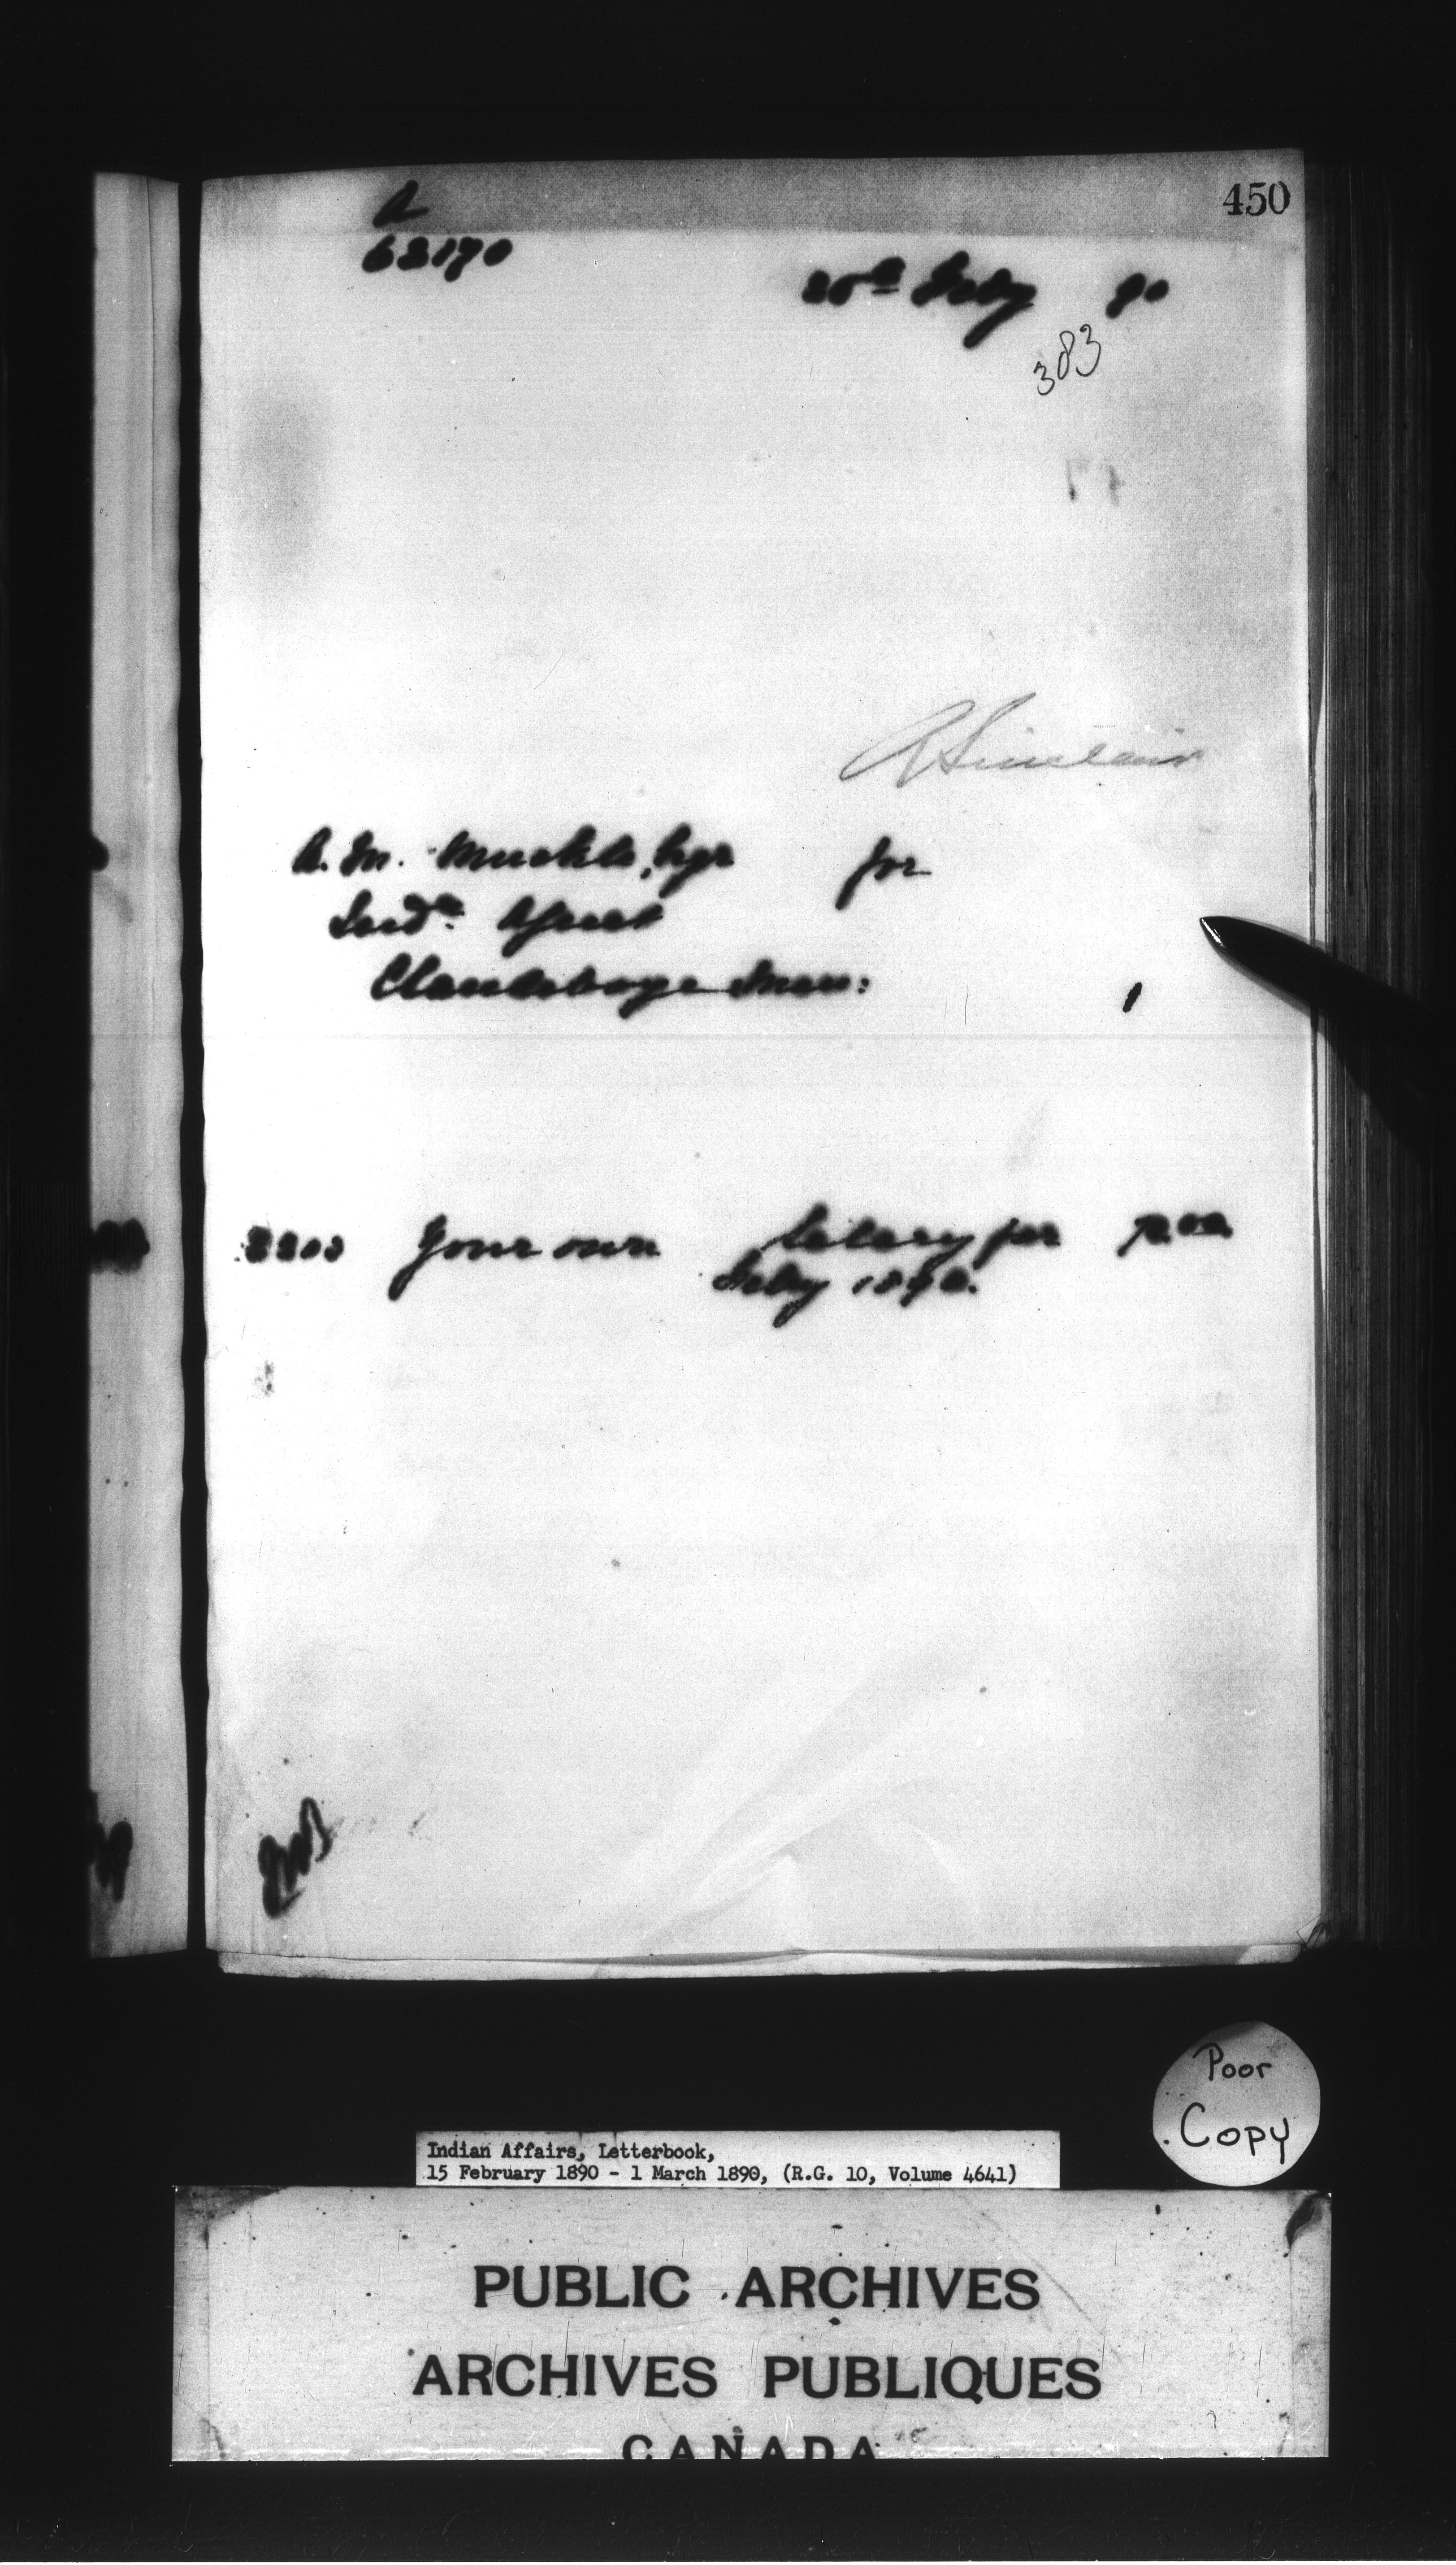 450
A
62170
25th Feby 90
383
A Sinclair
A. M. Muckle, Esqr for
Indn. Agent
Clandeboye Man:
1
2203 Your own Salary for 72 00
Feby 1890.
Poor
Copy
Indian Affairs, Letterbook,
15 February 1890 - 1 March 1890, (R.G. 10, Volume 4641)
PUBLIC ARCHIVES
ARCHIVES PUBLIQUES
CANADA